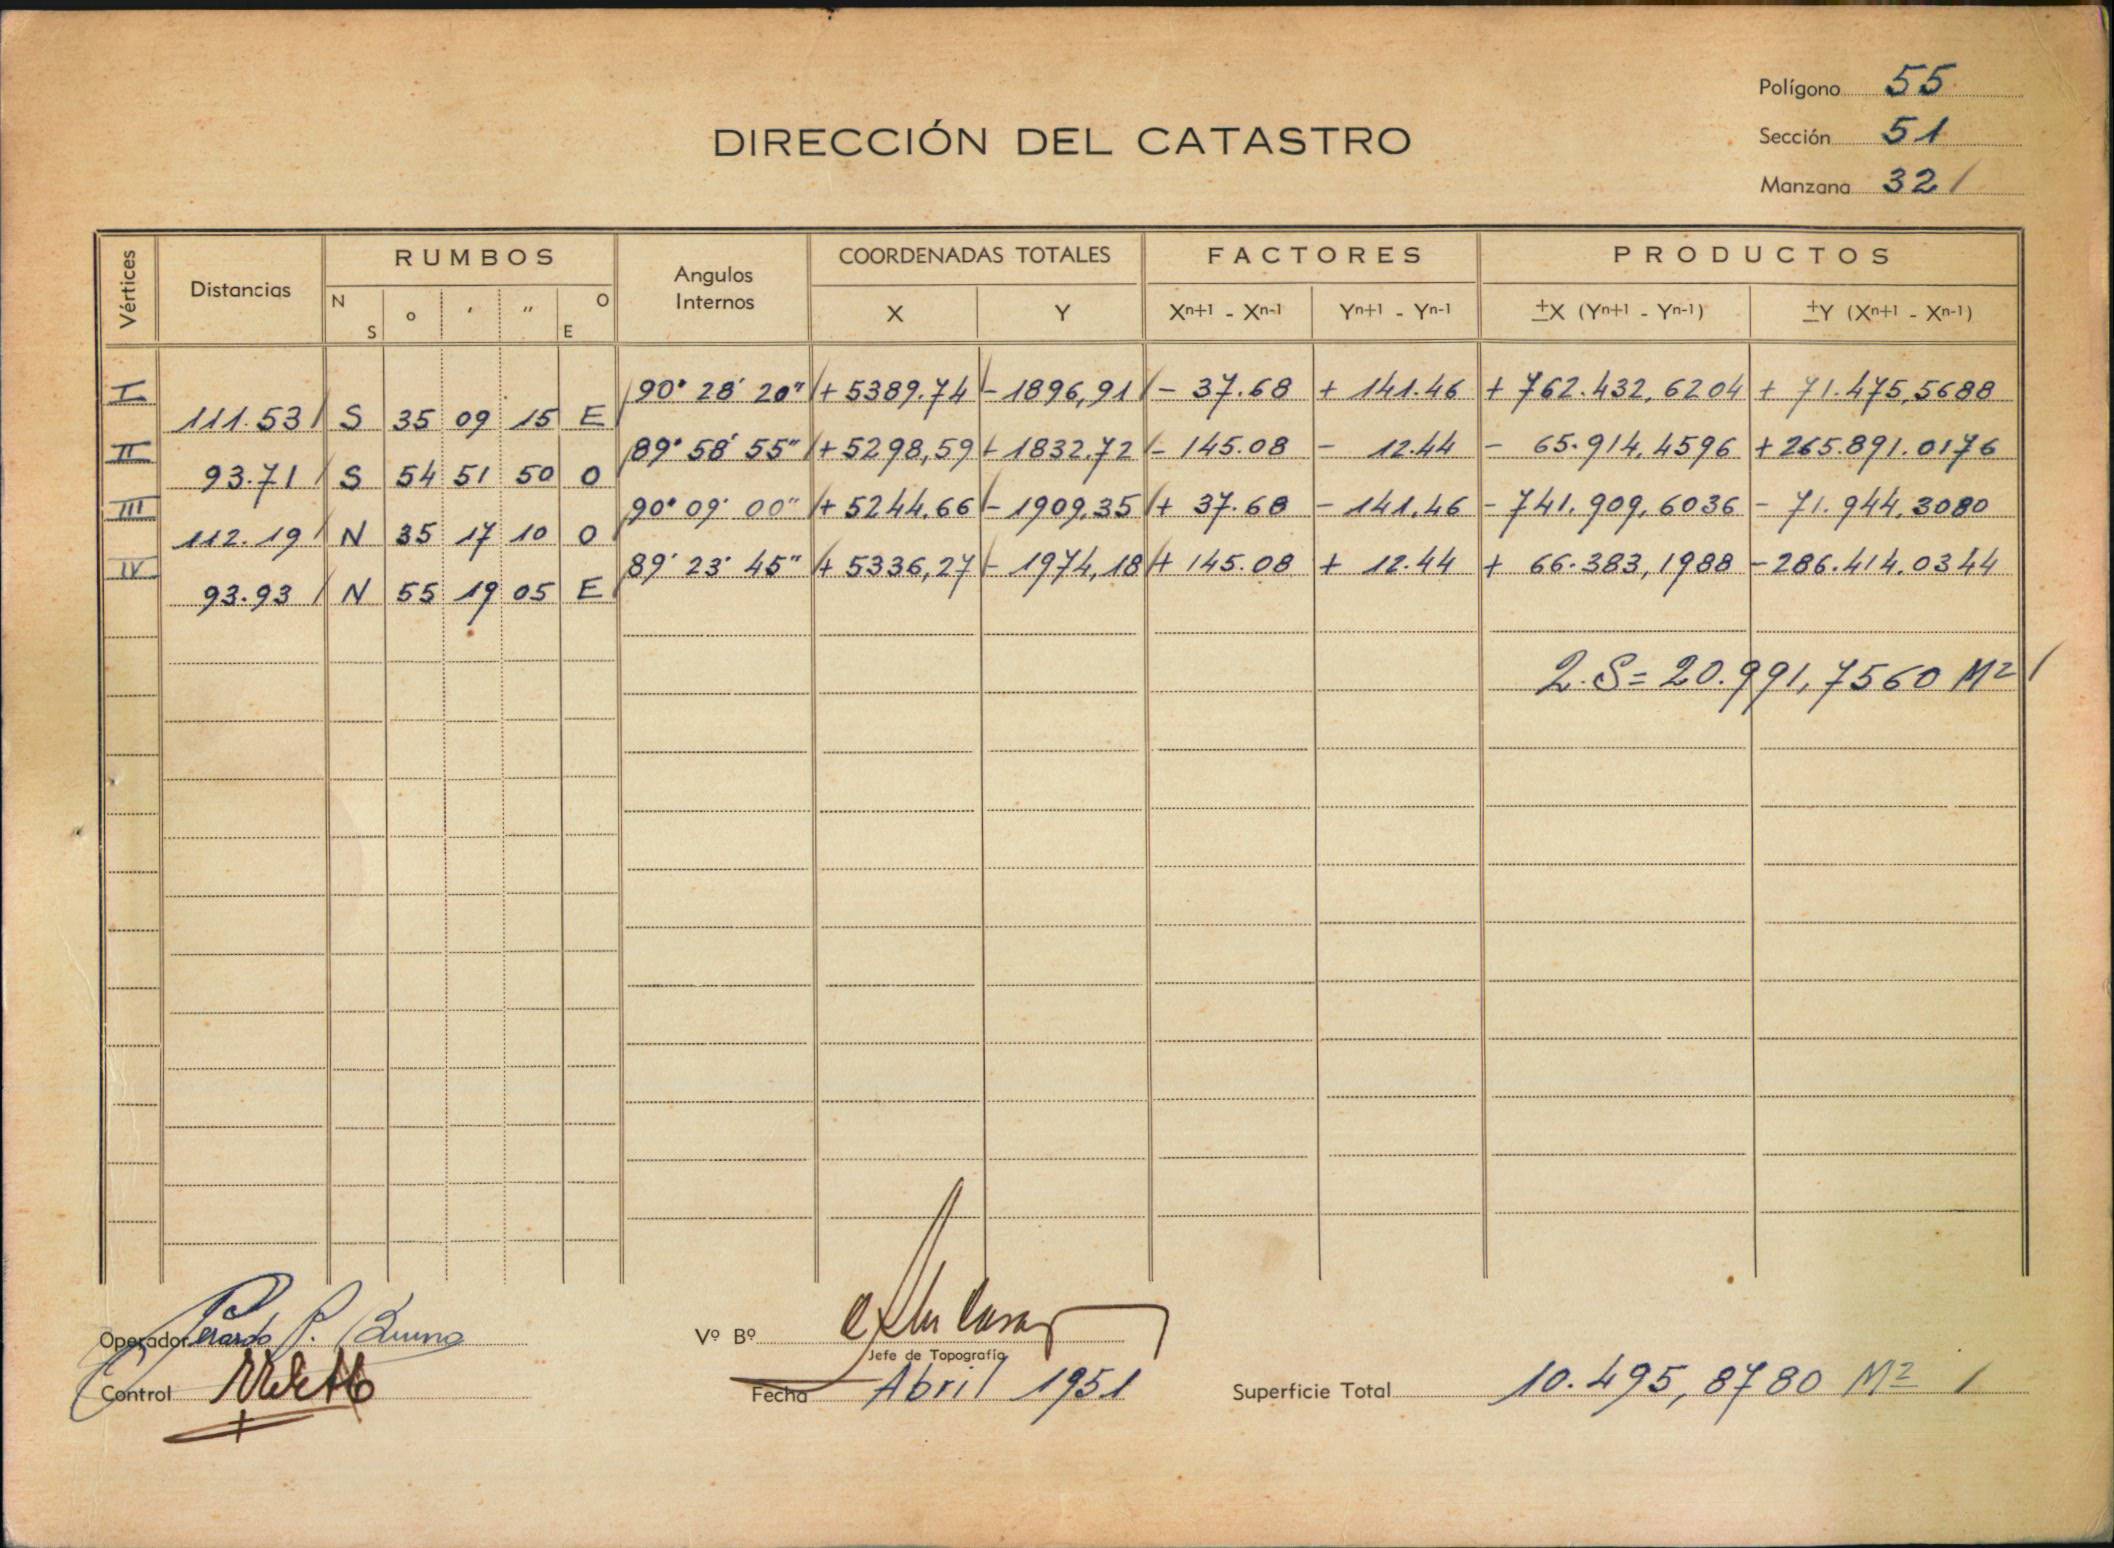 Polígono 55
DIRECCIÓN DEL CATASTRO
Sección 51
Manzana 32 /
Vértices Distancias RUMBOS N S o ′ ″ O E Angulos Internos COORDENADAS TOTALES X Y FACTORES Xn+1 - Xn-1 Yn+1 - Yn-1 PRODUCTOS ±X (Yn+1 - Yn-1) ±Y (Xn+1 - Xn-1)
I 90° 28′ 20″ + 5389.74 - 1896,91 - 37.68 + 141.46 + 762.432,6204 + 71.475,5688
111.53 S 35 09 15 E
II 89° 58′ 55″ + 5298,59 - 1832.72 - 145.08 - 12.44 - 65.914,4596 + 265.891.0176
93.71 S 54 51 50 O
III 90° 09′ 00″ + 5244.66 - 1909,35 + 37.68 - 141.46 - 741.909,6036 - 71.944,3080
112.19 N 35 17 10 O
IV 89° 23′ 45″ + 5336,27 - 1974,18 + 145.08 + 12.44 + 66.383,1988 - 286.414.0344
93.93 N 55 19 05 E
2.S = 20.991,7560 M² /
Operador
Vº Bº
Jefe de Topografía
Control
Fecha Abril 1951
Superficie Total 10.495,8780 M² /